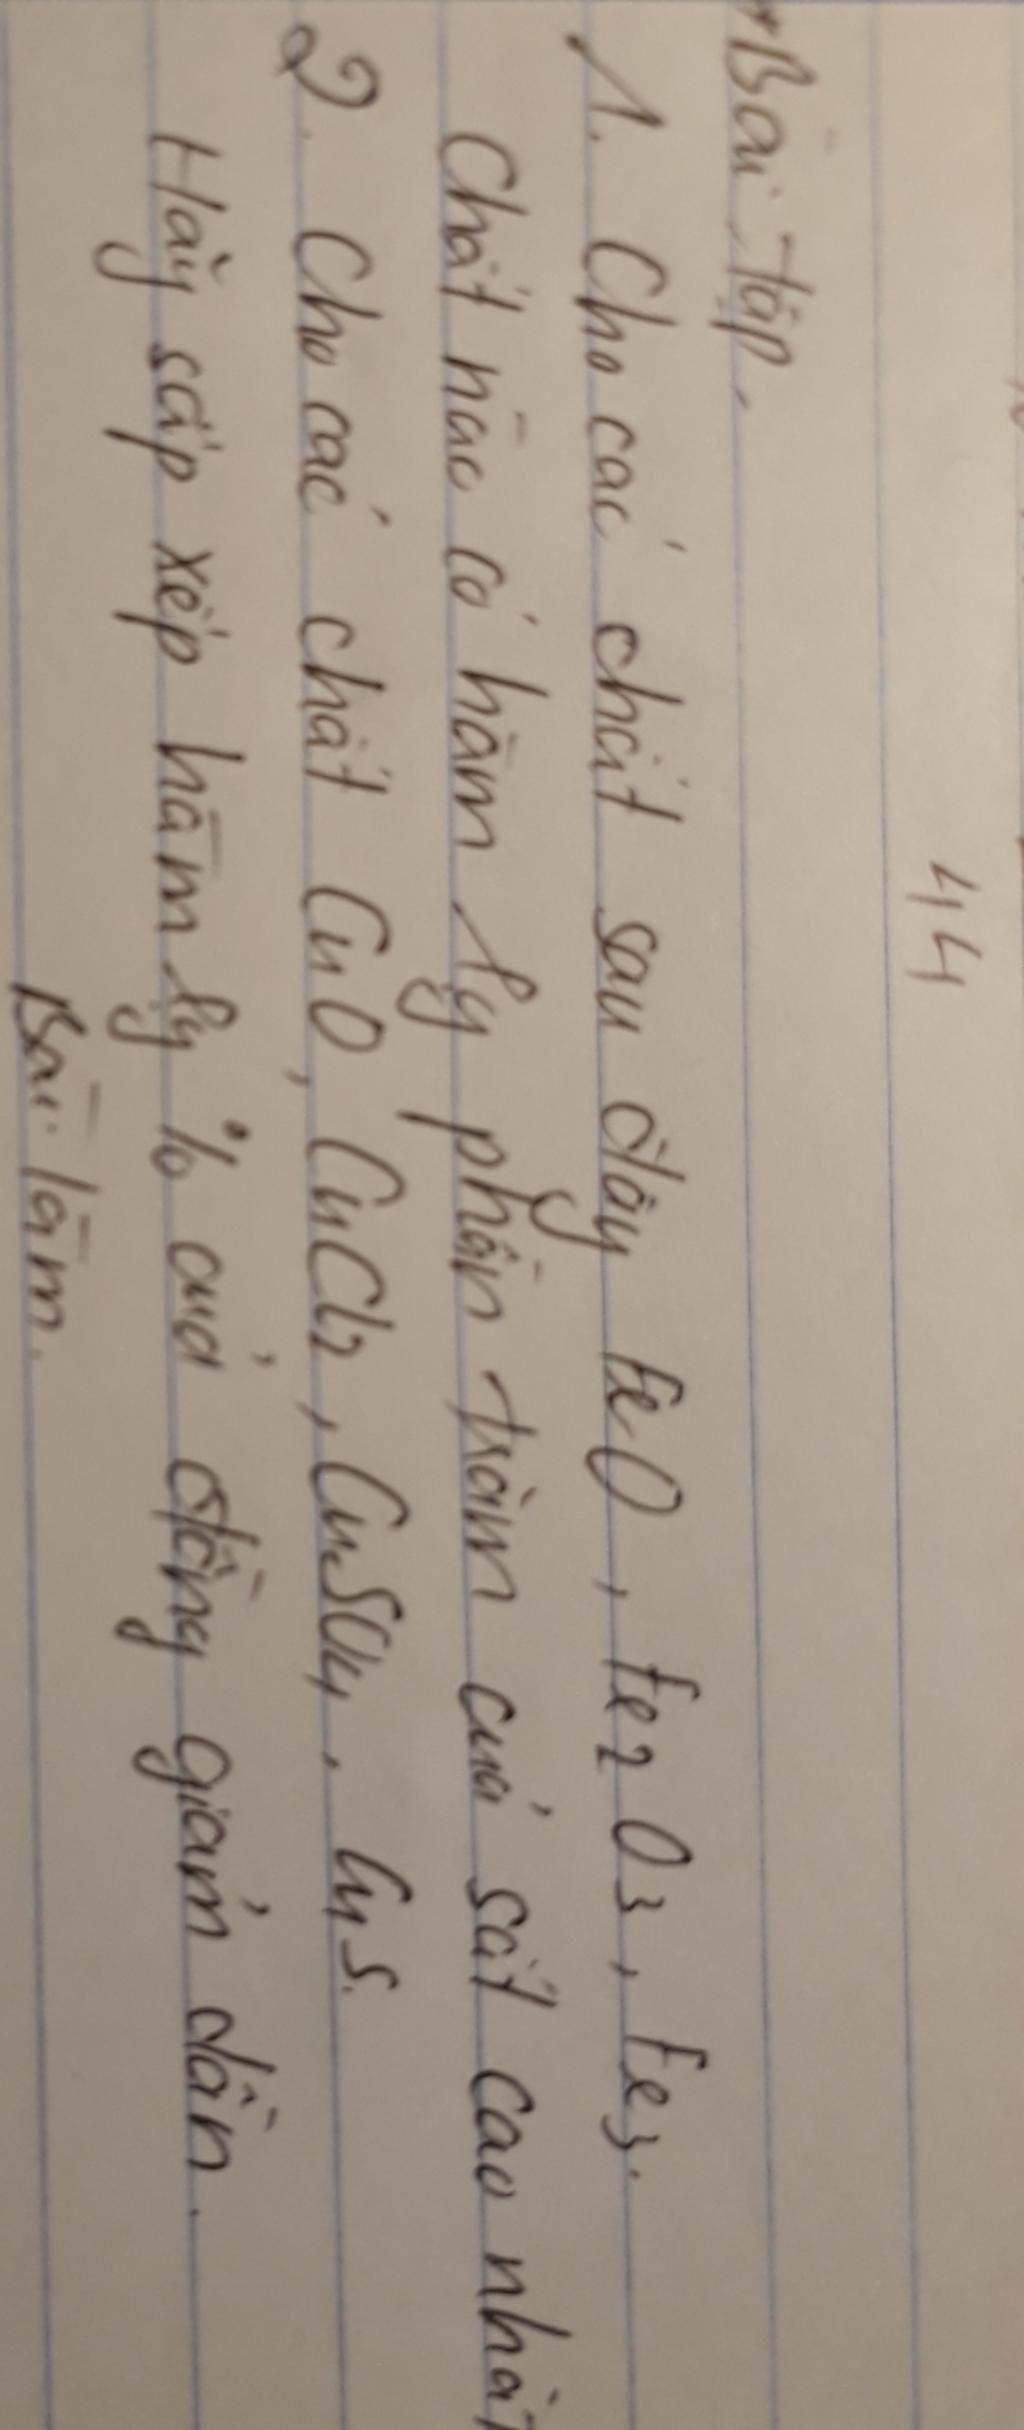 44
* Bài tập.
1. Cho các chất sau đây FeO, Fe2O3, Fe3.
Chất nào có hàm lg phần trăm của sắt cao nhất
2. Cho các chất CuO, CuCl2, CuSO4, CuS.
Hãy sắp xếp hàm lg % của đồng giảm dần.
Bài làm.